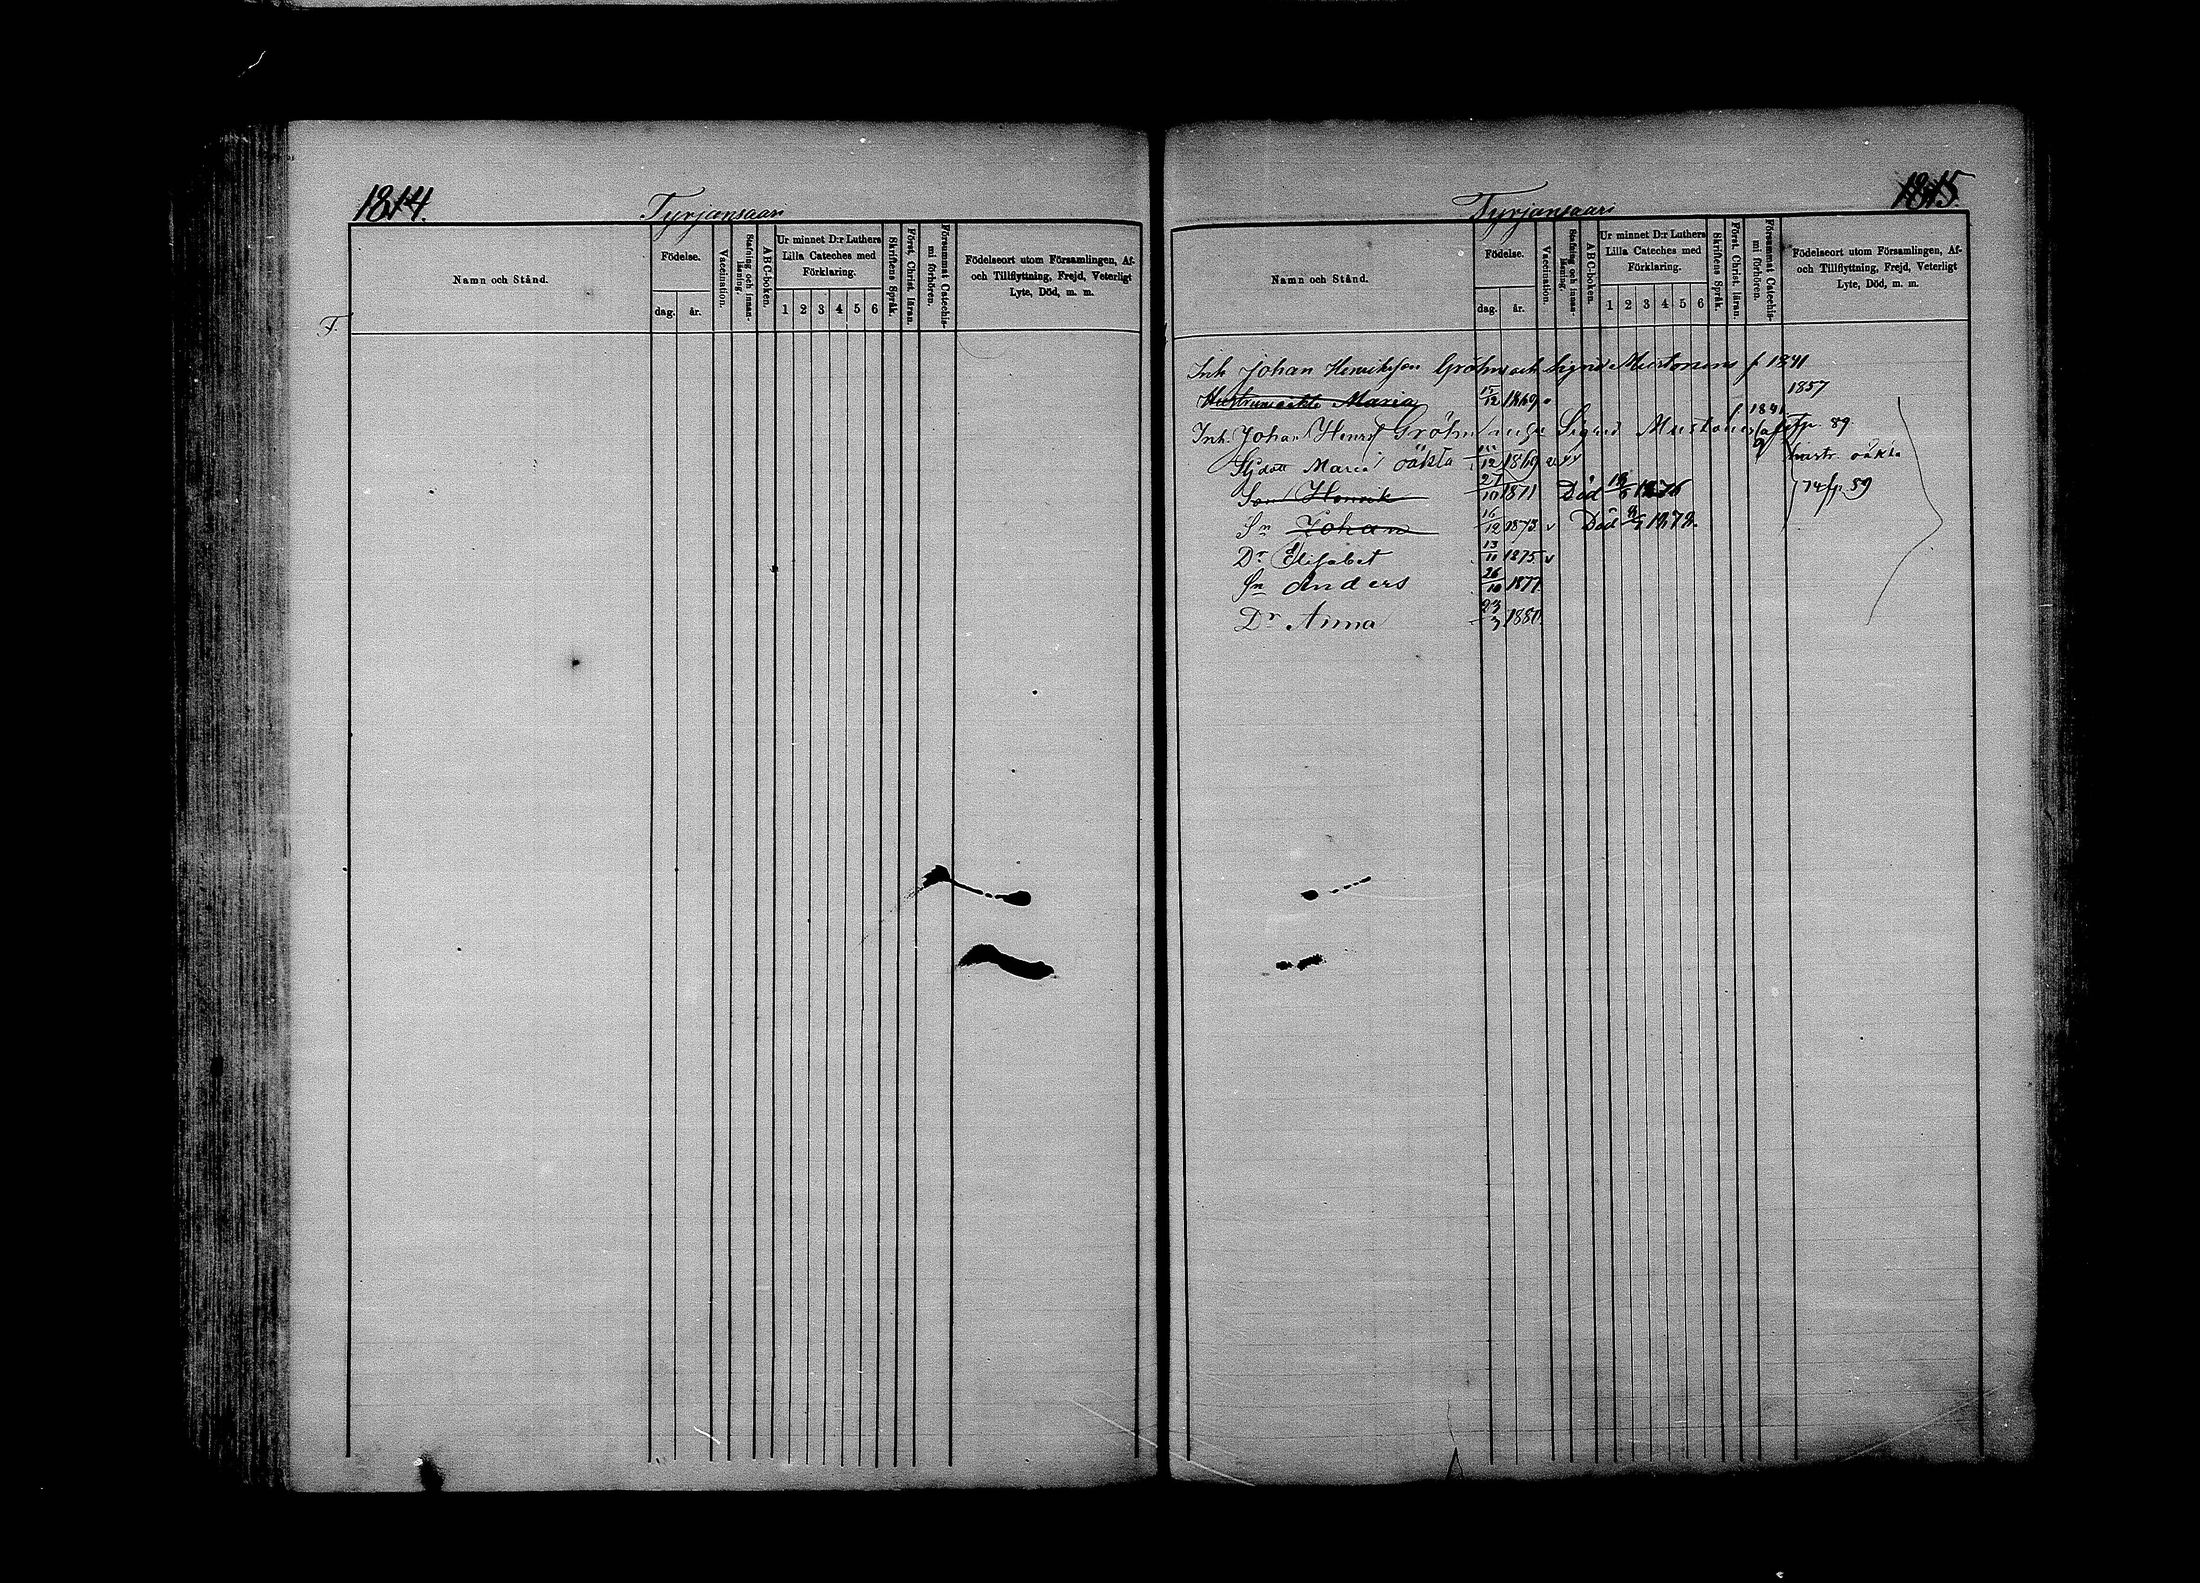 1814.
Tyrjänsaari
Namn och Stånd.
Födelse.
dag.
år.
Vaccination.
Stafning och innan-läsning.
ABC-boken.
Ur minnet D:r Luthers
Lilla Cateches med
Förklaring.
1 2 3 4 5 6
Skriftens Språk.
Först. Christ. läran.
Försummat Catechis-
mi förhören.
Födelseort utom Församlingen, Af-
och Tillflyttning, Frejd, Veterligt
Lyte, Död, m. m.
T.
Tyrjänsaari
1815.
Namn och Stånd.
Födelse.
dag.
år.
Vaccination.
Stafning och innan-läsning.
ABC-boken.
Ur minnet D:r Luthers
Lilla Cateches med
Förklaring.
1 2 3 4 5 6
Skriftens Språk.
Först. Christ. läran.
Försummat Catechis-
mi förhören.
Födelseort utom Församlingen, Af-
och Tillflyttning, Frejd, Veterligt
Lyte, Död, m. m.
Inh Johan Henriksson Gröhn och Sigrid Mustonens f 1841
Maria 15/12 1869 1857
Inh. Johan Henr Gröhn Sigrid Mustones f 1841 fp. 89
Maria oäkta 12 1869 hustr. oäkta
Son Henrik 27/10 1871 Död 1876 fp. 59
Sn Johan 16/12 1873 v Död
Dr Elisabet 13/11 1875 v
Sn Anders 26/10 1877
Dr Anna 23/3 1880